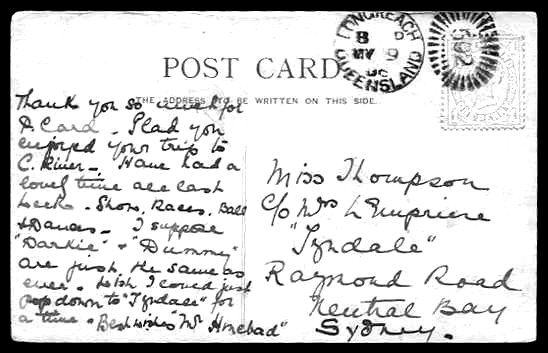 LONGREACH
8 P
MY 9
06
QUEENSLAND
502
POST CARD
THE ADDRESS TO BE WRITTEN ON THIS SIDE.
Thank you so much for
P. Card - Glad you
enjoyed your trip to
C. River -. Have had a
lovely time all last
week. Show, Races, Ball
& Dances - I suppose
"Darkie" & "Dummy"
are just the same as
ever. Wish I could just
pop down to "Tyndale" for
a time - Best wishes
Miss Thompson
C/o Mrs L'Empriere
"Tyndale"
Raymond Road
Neutral Bay
Sydney.